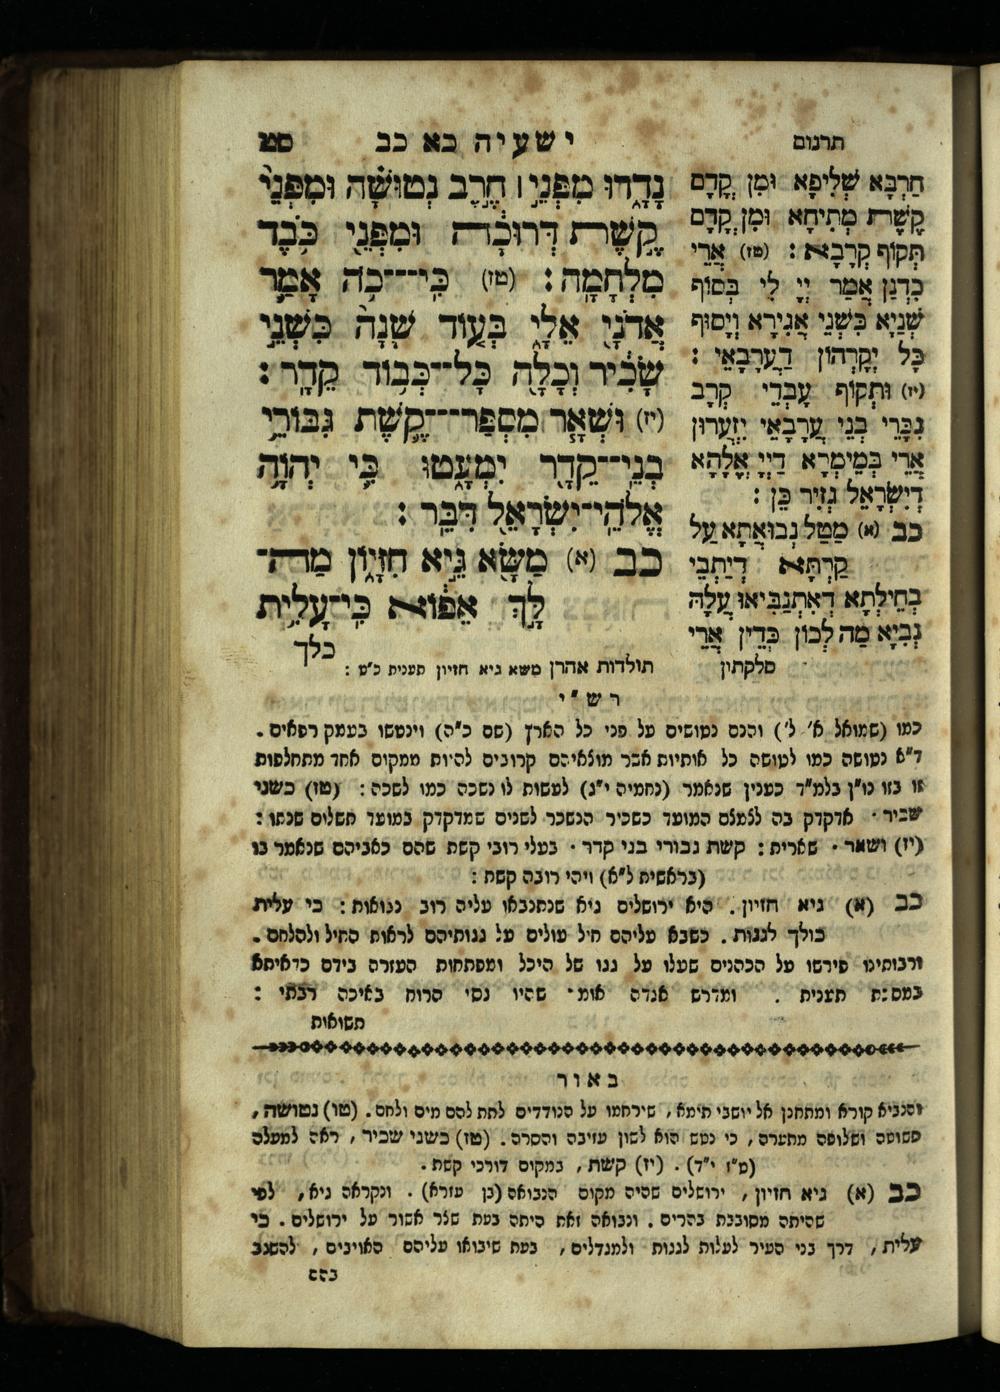 תרגום
ישעיה כא כב
סט
חַרְבָּא שְׁלִיפָא וּמִן קֳדָם
קַשְׁתָּא מְתִיחָא וּמִן קֳדָם
תְּקוֹף קְרָבָא : (טז) אֲרֵי
כִדְנַן אֲמַר יְיָ לִי בְּסוֹף
שְׁנַיָא כִּשְׁנֵי אֲגִירָא וְיָסוּף
כָּל יְקָרְהוֹן דַּעֲרָבָאֵי :
(יז) וּתְקוֹף עָבְדֵי קְרָב
גִּבָּרֵי בְּנֵי עֲרָבָאֵי יִזְעֲרוּן
אֲרֵי בְּמֵימְרָא דַיְיָ אֱלָהָא
דְיִשְׂרָאֵל גְּזִיר כֵּן :
כב (א) מַטַל נְבוּאֲתָא עַל
קַרְתָּא דְיַתְבֵי
בְחֵילְתָא דְּאִתְנַבִּיאוּ עֲלָהּ
נְבִיַּא מַה לְכוֹן כְּדֵין אֲרֵי
סלקתין
נָדָדוּ מִפְּנֵי ׀ חֶרֶב נְטוּשָׁה וּמִפְּנֵי
קֶשֶׁת דְּרוּכָה וּמִפְּנֵי כֹּבֶד
מִלְחָמָה : (טז) כִּי־כֹה אָמַר
אֲדֹנָי אֵלָי בְּעוֹד שָׁנָה כִּשְׁנֵי
שָׂכִיר וְכָלָה כָּל־כְּבוֹד קֵדָר :
(יז) וּשְׁאָר מִסְפַּר־קֶשֶׁת גִּבּוֹרֵי
בְנֵי־קֵדָר יִמְעָטוּ כִּי יְהוָה
אֱלֹהֵי־יִשְׂרָאֵל דִּבֵּר :
כב (א) מַשָּׂא גֵּיא חִזָּיוֹן מַה־
לָּךְ אֵפוֹא כִּי־עָלִית
כלך
תולדות אהרן משא גיא חזיון תענית כ"ט :
רש"י
כמו (שמואל א' ל') והנם נטושים על פני כל הארץ (שם כ"ה) וינטשו בעמק רפאים .
ד"א נטושה כמו לטושה כל אותיות אשר מוצאיהם קרובים להיות ממקום אחד מתחלפות
זו בזו נו"ן בלמ"ד כענין שנאמר (נחמיה י"ג) לעשות לו נשכה כמו לשכה : (טז) כשני
שכיר . אדקדק בה לצמצם המועד כשכיר הנשכר לשנים שמדקדק במועד תשלום שנתו :
(יז) ושאר . שארית : קשת גבורי בני קדר . בעלי רובי קשת שהם כאביהם שנאמר בו
(בראשית כ"א) ויהי רובה קשת :
כב (א) גיא חזיון . היא ירושלים גיא שנתנבאו עליה רוב נבואות : כי עלית
כולך לגגות . כשבא עליהם חיל עולים על גגותיהם לראות החיל ולהלחם .
ורבותינו פירשו על הכהנים שעלו על גגו של היכל ומפתחות העזרה בידם כדאיתא
במסכת תענית . ומדרש אגדה אומ' שהיו גסי הרוח באיכה רבתי :
תשואות
באור
והנביא קורא ומתחנן אל יושבי תימא , שירחמו על הנודדים לתת להם מים ולחם . (טו) נטושה ,
פשוטה ושלופה מתערה , כי נטש הוא לשון עזיבה והסרה . (טז) כשני שכיר , ראה למעלה
(ט"ז י"ד) . (יז) קשת , במקום דורכי קשת .
כב (א) גיא חזיון , ירושלים שהיה מקום הנבואה (בן עזרא) . ונקראה גיא , לפי
שהיתה מסובבת בהרים . ונבואה זאת היתה בעת שצר אשור על ירושלים . כי
עלית , דרך בני העיר לעלות לגגות ולמגדלים , בעת שיבואו עליהם האויבים , להשגב
בהם